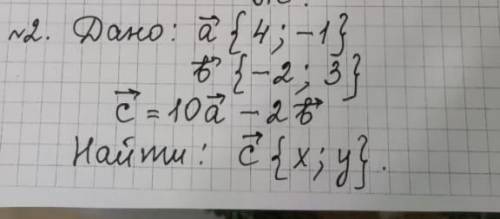 №2. Дано: a⃗ {4; -1}
b⃗ {-2; 3}
c⃗ = 10a⃗ - 2b⃗
Найти: c⃗ {x; y}.